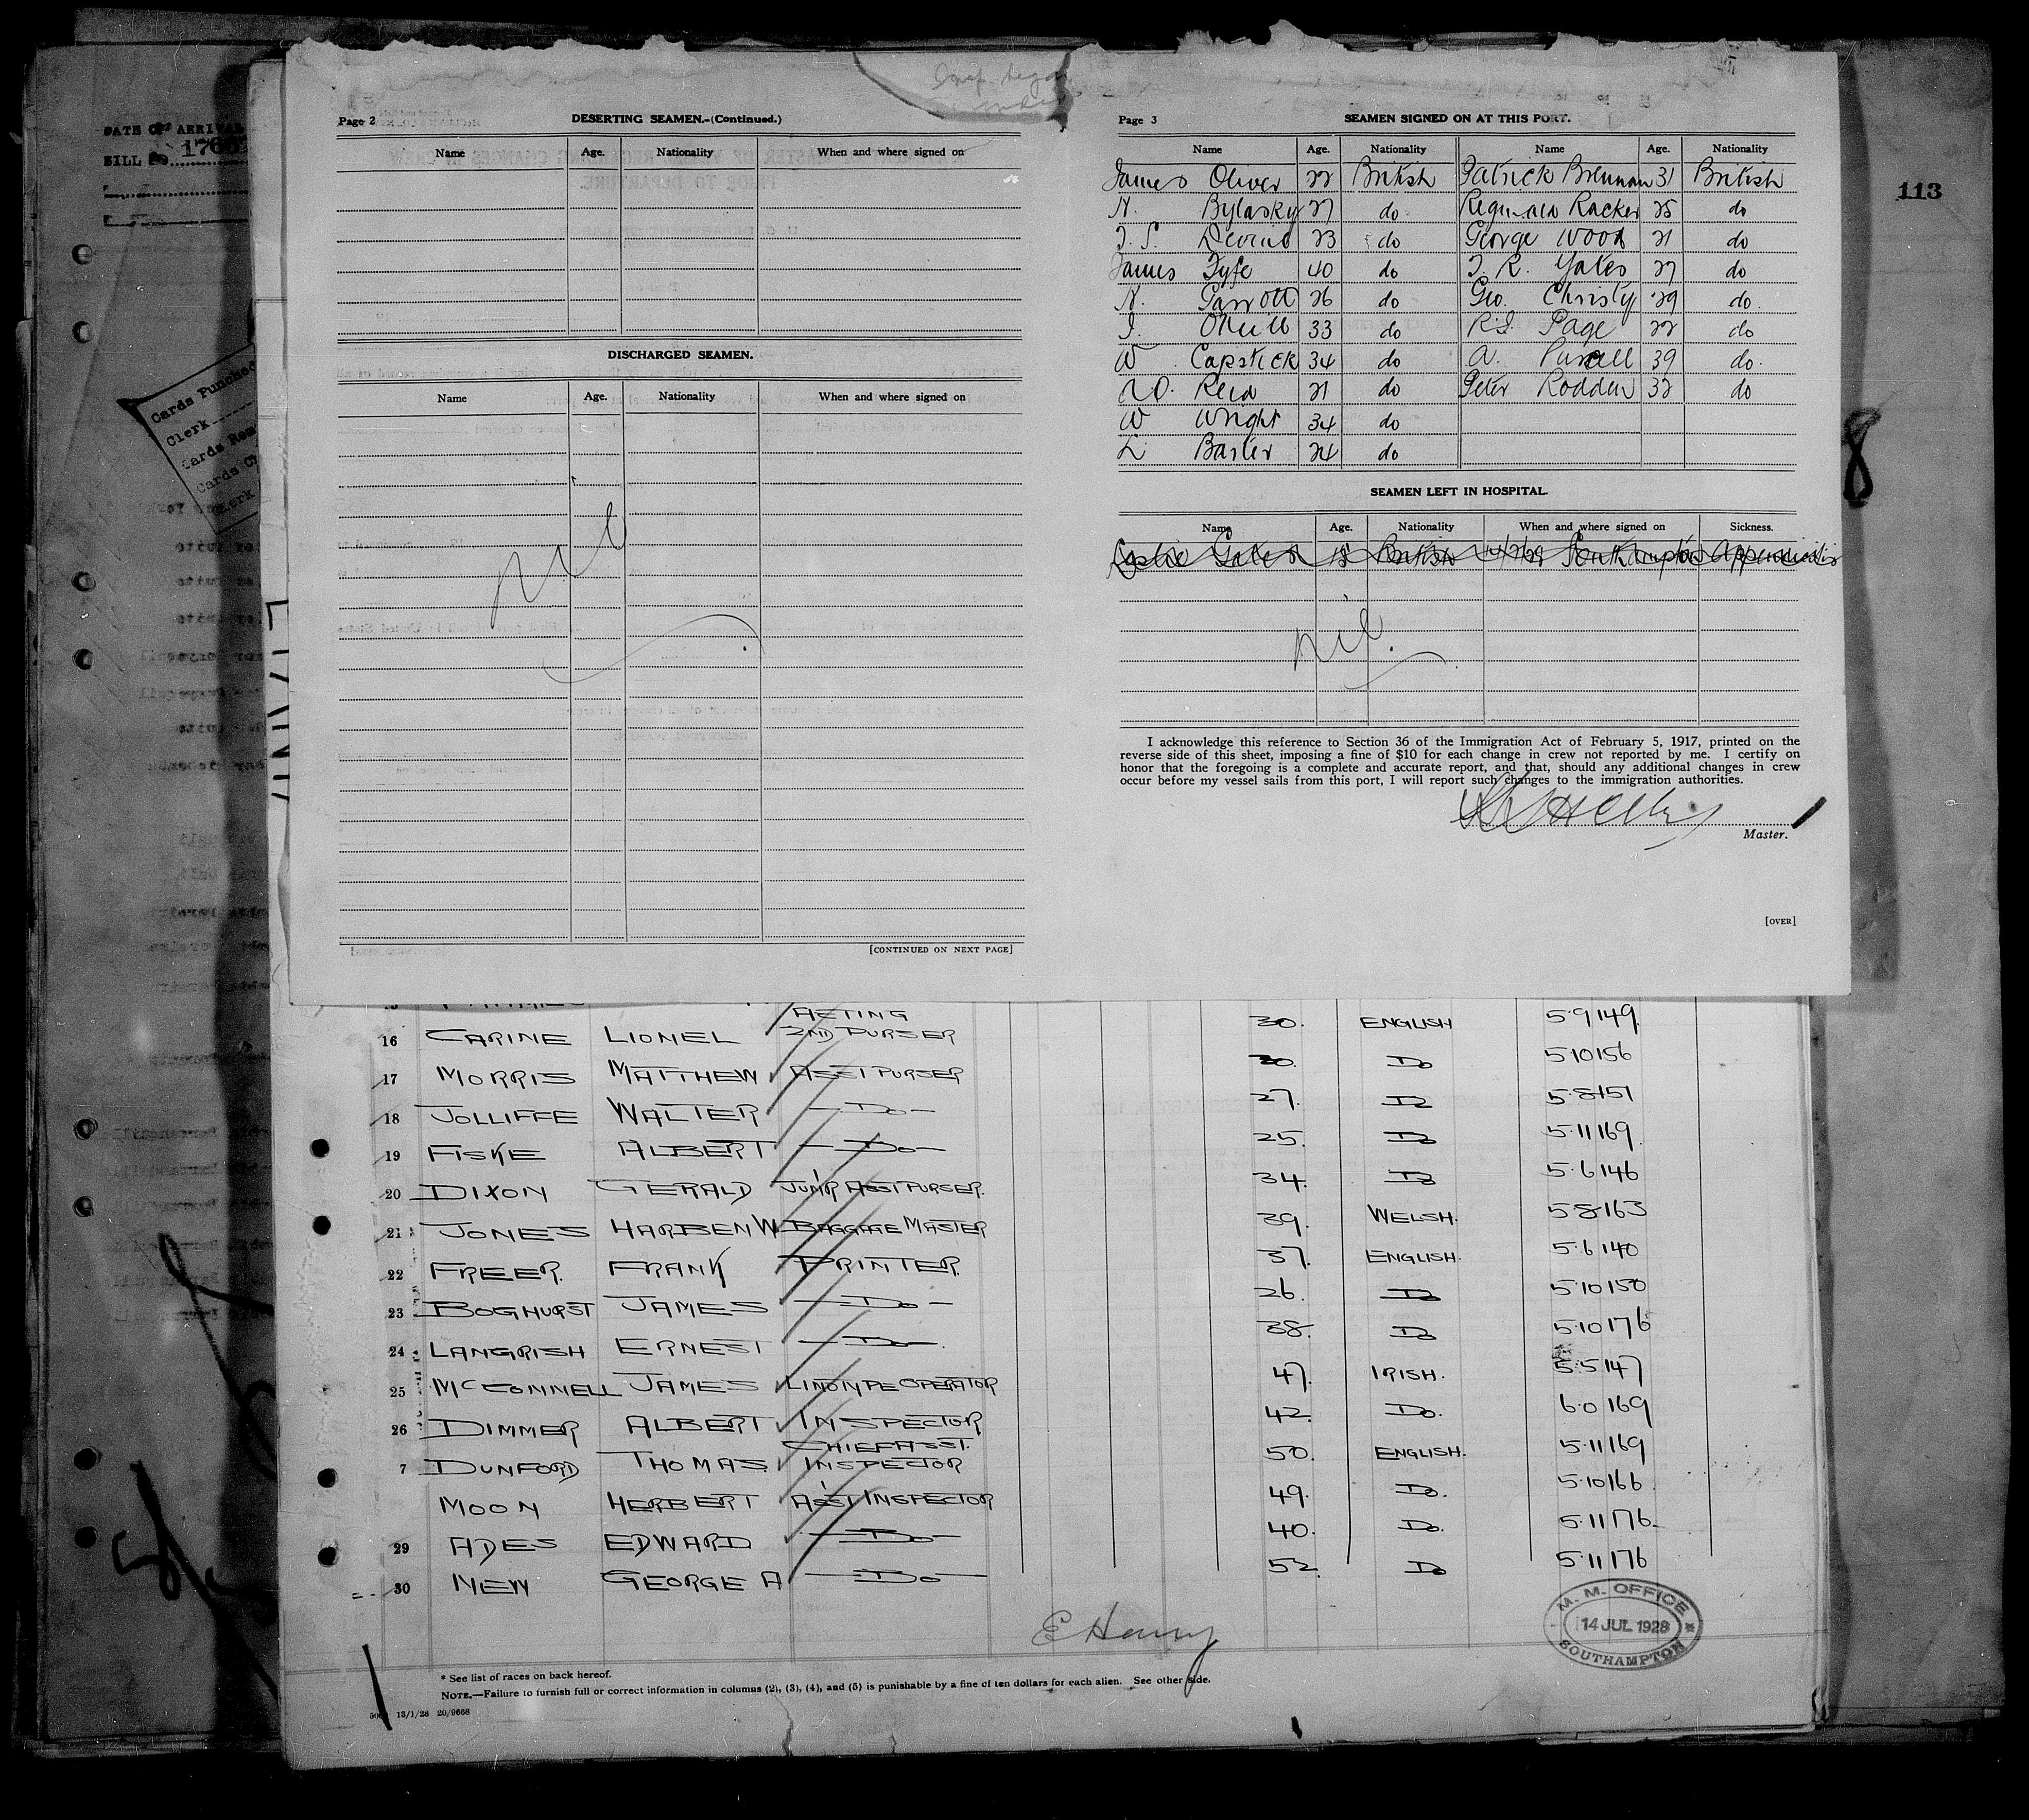 DATE OF ARRIVAL
BILL
113
Cards Punched
Clerk
Page 2
DESERTING SEAMEN.-(Continued.)
Name Age. Nationality When and where signed on
DISCHARGED SEAMEN.
Name Age. Nationality When and where signed on
Nil
[CONTINUED ON NEXT PAGE]
Page 3
SEAMEN SIGNED ON AT THIS PORT.
Name Age. Nationality Name Age. Nationality
James Oliver 22 British Patrick Brennan 31 British
N. Bylasky 27 do Reginald Racker 25 do
T. S. Devine 23 do George Wood 21 do
James Fyfe 40 do T. R. Yates 27 do
N. Garrott 26 do Geo. Christy 29 do.
J. O'Neill 33 do R.J. Page 22 do
W Capstick 34 do A. Pursell 39 do.
A.D. Reid 21 do Peter Rodden 32 do
W Wright 34 do
L Baxter 24 do
SEAMEN LEFT IN HOSPITAL.
Name Age. Nationality When and where signed on Sickness.
Leslie Gates 18 British Southampton Appendicitis
Nil.
I acknowledge this reference to Section 36 of the Immigration Act of February 5, 1917, printed on the
reverse side of this sheet, imposing a fine of $10 for each change in crew not reported by me. I certify on
honor that the foregoing is a complete and accurate report, and that, should any additional changes in crew
occur before my vessel sails from this port, I will report such changes to the immigration authorities.
Master.
[OVER]
8
16 CARINE LIONEL ACTING 2ND PURSER 30. ENGLISH 5.9 149.
17 MORRIS MATTHEW ASST PURSER 30. Do 5.10 156
18 JOLLIFFE WALTER -Do- 27. Do 5.8 151
19 FISKE ALBERT -Do- 25. Do 5.11 169.
20 DIXON GERALD JUNR ASST PURSER. 34. Do 5.6 146
21 JONES HARBEN W BAGGAGE MASTER 39. WELSH. 5.8 163
22 FREER. FRANK PRINTER. 37. ENGLISH. 5.6 140
23 BOGHURST JAMES -Do- 26. Do 5.10 150
24 LANGRISH ERNEST -Do- 38. Do 5.10 176
25 McCONNELL JAMES LINOTYPE OPERATOR 47. IRISH. 5.5 147
26 DIMMER ALBERT INSPECTOR 42. Do. 6.0 169
7 DUNFORD THOMAS. CHIEF ASST. INSPECTOR 50. ENGLISH. 5.11 169
MOON HERBERT ASST INSPECTOR 49. Do. 5.10 166.
29 ADES EDWARD -Do- 40. Do. 5.11 176.
30 NEW GEORGE A -Do- 52. Do 5.11 176
M. M. OFFICE
14 JUL 1928
SOUTHAMPTON
* See list of races on back hereof.
NOTE.—Failure to furnish full or correct information in columns (2), (3), (4), and (5) is punishable by a fine of ten dollars for each alien. See other side.
13/1/28 20/9668